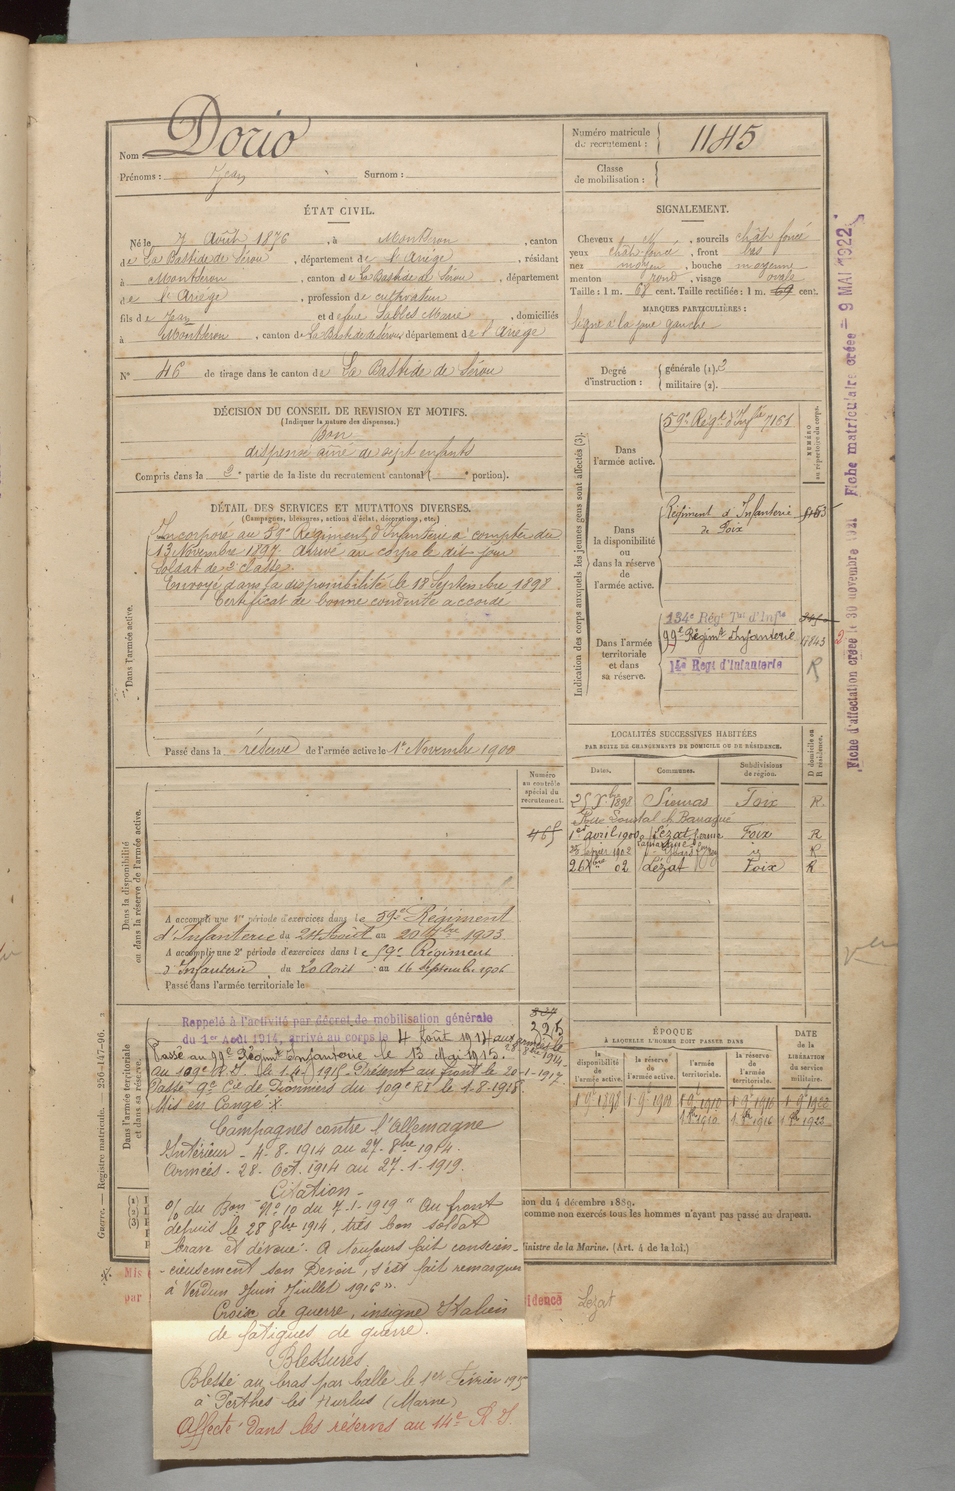 Nom : Dorio
Prénoms : Jean Surnom :
Numéro matricule
de recrutement : 1145
Classe
de mobilisation :
ÉTAT CIVIL.
Né le 7 Août 1876, à Montseron, canton
de La Bastide de Sérou, département de l'Ariège, résidant
à Montseron, canton de La Bastide de Sérou, département
de l'Ariège, profession de cultivateur
fils de Jean et de feue Sables Marie, domiciliés
à Montseron, canton de La Bastide de Sérou, département de l'Ariège
N° 46 de tirage dans le canton de La Bastide de Sérou
SIGNALEMENT.
Cheveux N, sourcils chât foncé
yeux chât foncé, front bas
nez moyen, bouche moyenne
menton rond, visage ovale
Taille : 1 m. 68 cent. Taille rectifiée : 1 m. 69 cent.
MARQUES PARTICULIÈRES :
Signe à la joue gauche
Degré
d'instruction :
générale (1). 3
militaire (2).
DÉCISION DU CONSEIL DE REVISION ET MOTIFS.
(Indiquer la nature des dispenses.)
Bon
dispensé aîné de sept enfants
Compris dans la 3e partie de la liste du recrutement cantonal ( e portion).
DÉTAIL DES SERVICES ET MUTATIONS DIVERSES.
(Campagnes, blessures, actions d'éclat, décorations, etc.)
Dans l'armée active.
Incorporé au 59e Régiment d'Infanterie à compter du
13 Novembre 1897. Arrivé au corps le dit jour
Soldat de 2e classe.
Envoyé dans la disponibilité le 18 Septembre 1898
Certificat de bonne conduite accordé
Passé dans la réserve de l'armée active le 1er Novembre 1900
Indication des corps auxquels les jeunes gens sont affectés (3).
NUMÉRO
au répertoire du corps.
Dans
l'armée active.
59e Régt d'Infie 7161
Dans
la disponibilité
ou
dans la réserve
de
l'armée active.
Régiment d'Infanterie
de Foix
Dans l'armée
territoriale
et dans
sa réserve.
134e Régt Tal d'Infie
99e Régimt Infanterie 9843
14e Regt d'Infanterie R
Fiche d'affectation créée le 30 novembre 1921 Fiche matriculaire créée - 9 MAI 1922
LOCALITÉS SUCCESSIVES HABITÉES
PAR SUITE DE CHANGEMENTS DE DOMICILE OU DE RÉSIDENCE.
Dates. Communes. Subdivisions
de région. D domicile ou
R résidence.
25 Xbre 1898 Sieuras Foix R.
1er avril 1900 Lézat ferme Foix R
février 1902 id R
26 Xbre 02 Lézat Foix R
Dans la disponibilité
ou dans la réserve de l'armée active.
Numéro
au contrôle
spécial du
recrutement.
465
A accompli une 1re période d'exercices dans le 59e Régiment
d'Infanterie du 24 Août au 20 7bre 1903
A accompli une 2e période d'exercices dans le 59e Régiment
d'Infanterie du 20 Août au 16 Septembre 1906
Passé dans l'armée territoriale le
Dans l'armée territoriale
et dans sa réserve.
225
Rappelé à l'activité par décret de mobilisation générale
du 1er Août 1914, arrivé au corps le 4 Août 1914 aux armées le
28 8bre 1914
Passé au 99e Régimt Infanterie le 13 Mai 1915.
au 109e R.I. le 1915. Présent au front le 20-1-1917
Passé 9e Cie de Pionniers du 109e RI le 1-8-1918
Mis en Congé
Campagnes contre l'Allemagne
Intérieur - 4-8-1914 au 27-8bre 1914.
Armées - 28-Oct. 1914 au 27-1-1919.
Citation -
% du Bon N° 10 du 7-1-1919 "Au front
depuis le 28 8bre 1914, très bon soldat
brave et dévoué. A toujours fait conscien-
-cieusement son Devoir, s'est fait remarquer
à Verdun Juin Juillet 1916".
Croix de guerre, insigne Italien
de fatigues de guerre.
Blessures
Blessé au bras par balle le 1er Février 1915
à Perthes les Hurlus (Marne)
Affecté dans les réserves au 14e R.I.
ÉPOQUE
À LAQUELLE L'HOMME DOIT PASSER DANS
DATE
de la
LIBÉRATION
du service
militaire.
la
disponibilité
de l'armée active.
la réserve
de
l'armée active.
l'armée
territoriale.
la réserve
de
l'armée
territoriale.
1 9bre 1898 1 9bre 1900 1 9bre 1910 1 9bre 1916 1 9bre 1922
1 1910 1 1916 1 1922
tion du 4 décembre 1889.
comme non exercés tous les hommes n'ayant pas passé au drapeau.
Ministre de la Marine. (Art. 4 de la loi.)
Mis
par
idence Lezat
Guerre. — Registre matricule. — 256-147-96.